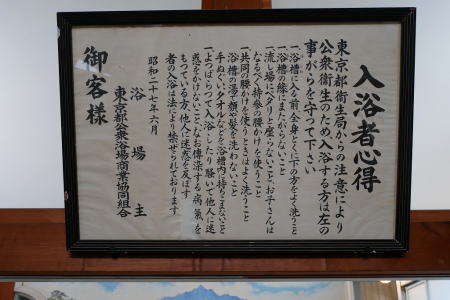 入浴者心得
東京都衛生局からの注意により
公衆衛生のため、入浴する方は左の
事がらを守って下さい
一、浴槽に入る前、全身とくに下の方をよく洗うこと
一、浴槽の縁にまたがらないこと
一、流し場にペタリと座らないこと、お子さんは
なるべく持参の腰かけを使うこと
一、共同の腰かけを使うときはよく洗うこと
一、浴槽の湯で顔や髪を洗わないこと
一、手ぬぐい、タオルなどを浴槽内に持ちこまないこと
一、よっぱらって入浴したり、騒いで他人に迷
惑をかけないこと、なお傳染する病氣を
もっている方、他人に迷惑を及ぼす
者の入浴は法により禁ぜられております
昭和二十七年六月
浴場主
東京都公衆浴場商業協同組合
御客様